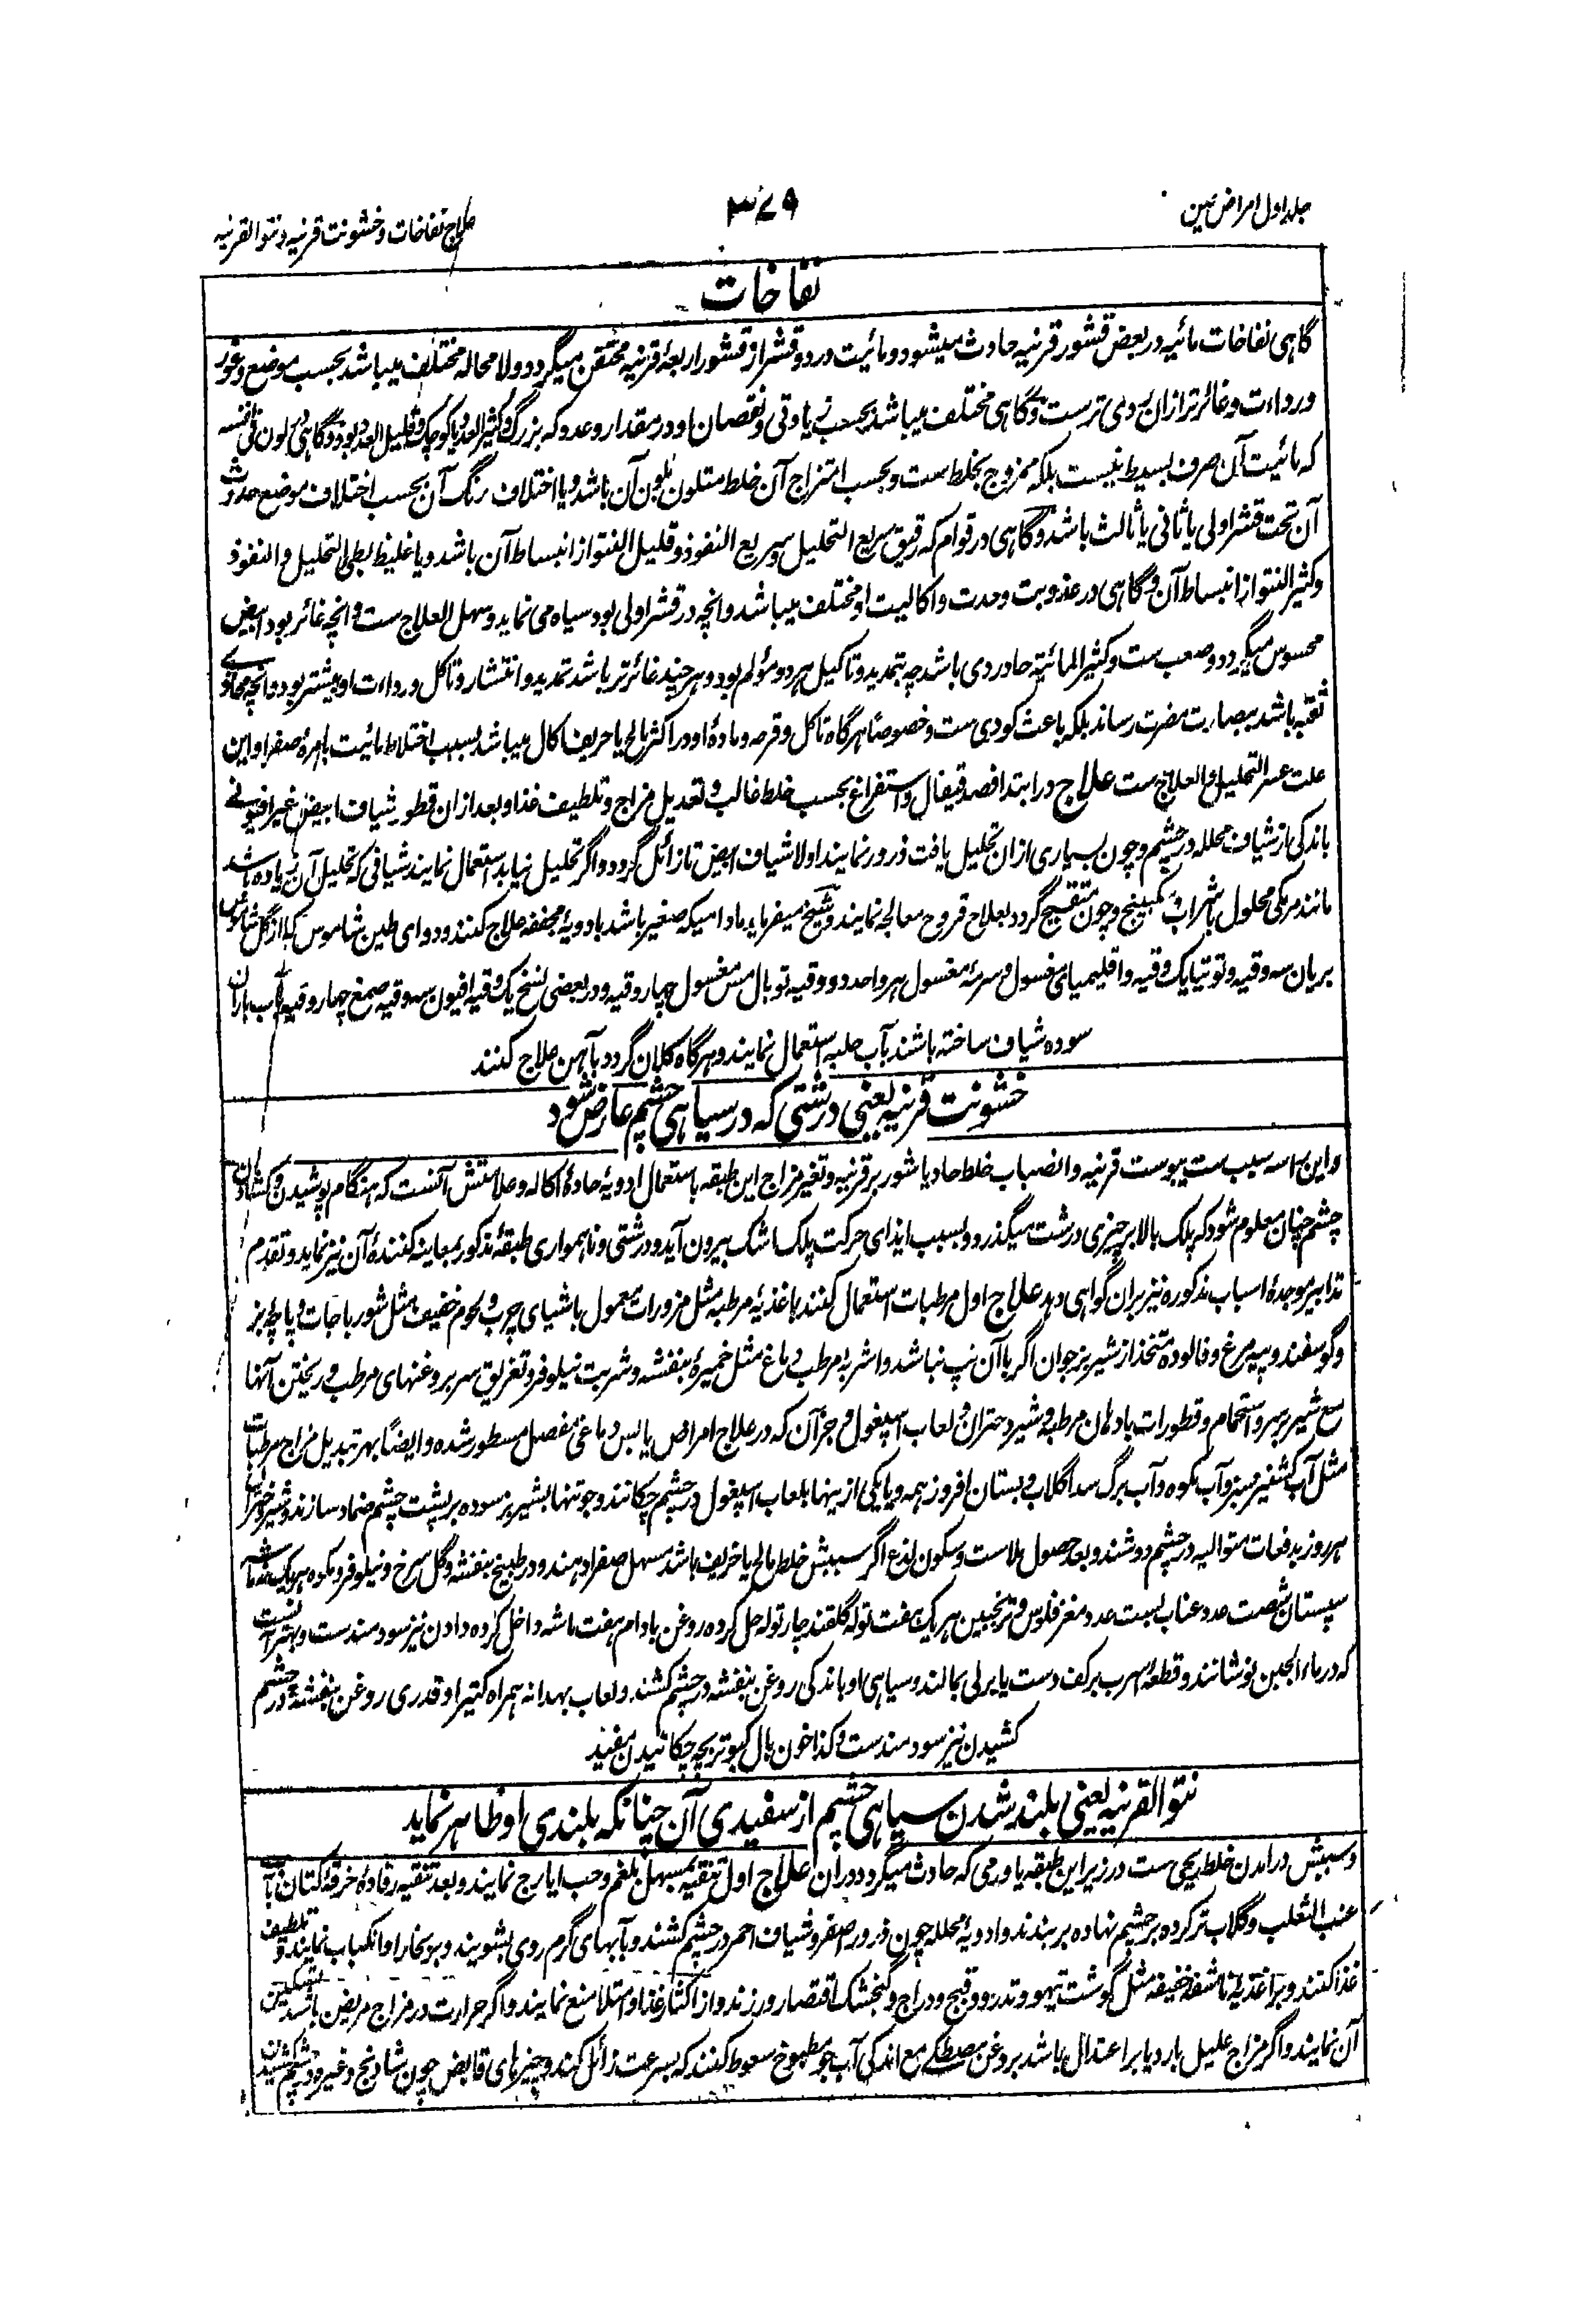 جلد اول امراض عین
۳۷۹
علاج نفاخات و خشونت قرنیه و نتو القرنیه
نفاخات
گاهی نفاخات مائیه در بعض قشور قرنیه حادث میشود و مائیت در دو قشر از قشور اربعۀ قرنیه محتقن میگردد و لا محاله مختلف میباشد بحسب موضع و غور
و رداءت و غائر تر از ان ردی ترست و گاهی مختلف میباشد بحسب زیادتی و نقصان او در مقدار و عدد که بزرگ و کثیر العدد یا کوچک و قلیل العدد بود و گاهی در لون فی نفسه
که مائیت آن صرف بسیط نیست بلکه ممزوج بخلط ست و بحسب امتزاج آن خلط متلون بلون آن باشد و یا اختلاف رنگ آن بحسب اختلاف موضع حدوث
آن تحت قشر اولی یا ثانی یا ثالث باشد و گاهی در قوام که رقیق سریع التحلیل و سریع النفوذ و قلیل النتو از انبساط آن باشد و یا غلیظ بطی التحلیل و النفوذ
و کثیر النتو از انبساط آن و گاهی در عذوبت و حدت و اکالیت او مختلف میباشد و انچه در قشر اولی بود سیاه می نماید و سهل العلاج ست و انچه غائر بود ابیض
محسوس میگردد و صعب ست و کثیر المائیة حاد ردی باشد چه بتمدید و تاکیل هر دو مؤلم بود و هر چند غائر تر باشد تمدید و انتشار و تاکل و رداءت او بیشتر بود و انچه محاذی
ثقبه باشد ببصارت مضرت رساند بلکه باعث کوری ست و خصوصاً هرگاه تاکل و قرحه و مادۀ او در اکثر مالح یا حریف اکال میباشد بسبب اختلاط مائیت بامرۀ صفرا و این
علت عسر التحلیل و العلاج ست علاج در ابتدا فصد قیفال و استفراغ بحسب خلط غالب و تعدیل مزاج و تلطیف غذا و بعد از ان قطور شیاف ابیض غیر افیونی
باندکی از شیاف محلله در چشم و چون بسیاری از ان تحلیل یافت ذرور نمایند اولا شیاف ابیض تا زائل گردد و اگر تحلیل نیابد استعمال نمایند شیافی که تحلیل آن زیاده باشد
مانند مر مکی محلول بشراب و سکبینج و چون متقیح گردد بعلاج قروح معالجه نمایند و شیخ میفرماید مادامیکه صغیر باشد بادویۀ مجففه علاج کنند و دوای طین شاموس که از گل شاموس
بریان سه وقیه و توتیا یک وقیه و اقلیمیای مغسول و سرمۀ مغسول هر واحد دو وقیه توبال مس مغسول چهار وقیه و در بعضی نسخ یک وقیه افیون سه وقیه صمغ چهار وقیه بآب باران
سوده شیاف ساخته باشند بآب حلبه استعمال نمایند و هرگاه کلان گردد بآهن علاج کنند
خشونت قرنیه یعنی درشتی که در سیاهی چشم عارض شود
و این را سه سبب ست یبوست قرنیه و انصباب خلط حاد یا شور بر قرنیه و تغیر مزاج این طبقه باستعمال ادویۀ حادۀ اکاله و علامتش آنست که هنگام پوشیدن و کشادن
چشم چنان معلوم شود که پلک بالا بر چیزی درشت میگذرد و بسبب ایذای حرکت پلک اشک بیرون آید و درشتی و ناهمواری طبقۀ مذکور بمعاینه کنندۀ آن نیز نماید و تقدم
تدابیر موجدۀ اسباب مذکوره نیز بران گواهی دهد علاج اول مرطبات استعمال کنند باغذیۀ مرطبه مثل مزورات معمول باشیای چرب و لحوم خفیف مثل شورباجات و پاچۀ بز
و گوسفند و پیه مرغ و فالوده متخذ از شیر بز جوان اگر با آن تپ نباشد و اشربۀ مرطب دماغ مثل خمیرۀ بنفشه و شربت نیلوفر و تغریق سر بروغنهای مرطب و ریختن آنها
مع شیر بر سر و استحمام و قطورات بادهان مرطبه و شیر دختران و لعاب اسپغول و جز آن که در علاج امراض یابس دماغی مفصل مسطور شده و ایضاً بهر تبدیل مزاج مرطبات
مثل آب کشنیز سبز و آب مکوه و آب برگ سداگلاب و بستان افروز همه و یا یکی ازینها بلعاب اسپغول در چشم چکانند و جو تنها بشیر بز سوده بر پشت چشم ضماد سازند و شیر دختران
هر روز بدفعات متوالیه در چشم دوشند و بعد حصول ملاست و سکون لذع اگر سببش خلط مالح یا حریف باشد مسهل صفرا دهند و در طبیخ بنفشه و گل سرخ و نیلوفر و مکوه هر یک شش ماشه
سپستان شصت عدد عناب بیست عدد مغز فلوس و ترنجبین هر یک هفت توله گلقند چار توله حل کرده روغن بادام هفت ماشه داخل کرده دادن نیز سودمندست و بهتر آنست
که در ماء الجبن نوشانند و قطعۀ اسرب بر کف دست یا بر لی بمالند و سیاهی او باندکی روغن بنفشه در چشم کشند و لعاب بهدانه همراه کتیرا و قدری روغن بنفشه در چشم
کشیدن نیز سودمندست و کذا خون بال کبوتر بچه چکانیدن مفید
نتو القرنیه یعنی بلند شدن سیاهی چشم از سفیدی آن چنانکه بلندی او ظاهر نماید
و سببش درامدن خلط ریحی ست در زیر این طبقه یا ورمی که حادث میگردد دران علاج اول تنقیه بمسهل بلغم و حب ایارج نمایند و بعد تنقیه رفادۀ خرقۀ کتان بآب
عنب الثعلب و گلاب تر کرده بر چشم نهاده بر بندند و ادویۀ محلله چون ذرور اصفر و شیاف احمر در چشم کشند و بآبهای گرم روی بشویند و ببخار او انکباب نمایند و تلطیف
غذا کنند و بر اغذیۀ ناشفه خفیفه مثل گوشت تیهو و تدرو و قبج و دراج و گنجشک اقتصار ورزند و از اکثار غذا و امتلا منع نمایند و اگر حرارت در مزاج مریض باشد تسکین
آن نمایند و اگر مزاج علیل بارد یا بر اعتدال باشد بروغن مصطگی مع اندکی آب جو مطبوخ سعوط کنند که بسرعت زائل کند و چیزهای قابض چون شادنج و غیره در چشم کشیدن